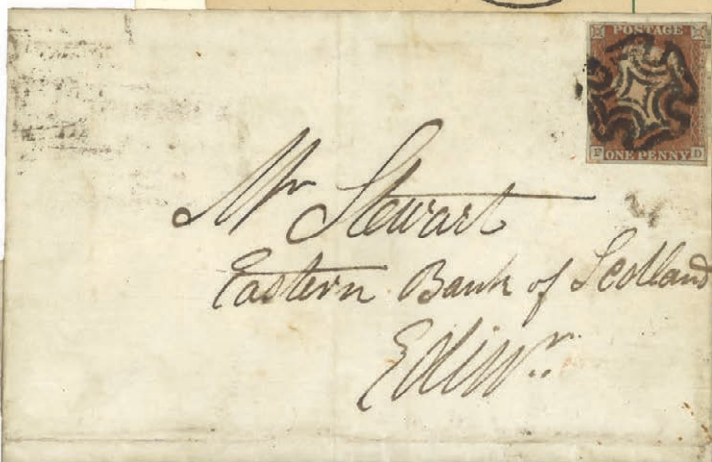 POSTAGE
P ONE PENNY D
Mr Stewart
Eastern Bank of Scotland
Edinr.